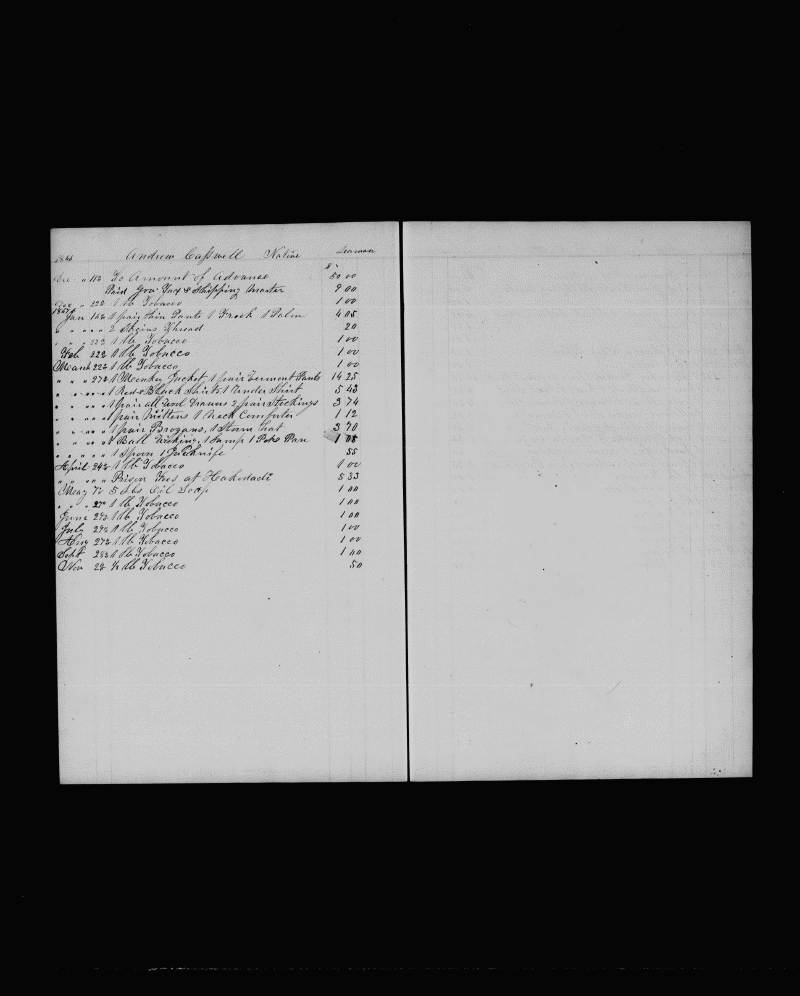 1866 Andrew Caswell Native Seaman
Dec " 11th To Amount of Advance 50 00
Paid Gov Tax & Shipping Master 9 00
Dec " 22d 1 lb Tobacco 1 00
1867
Jan 1 pair thin Pants 1 Frock 1 Palm 4 05
" " " " 2 Skeins Thread 20
" " 22d 1 lb Tobacco 1 00
Feb 22d 1 lb Tobacco 1 00
March 22d 1 lb Tobacco 1 00
" " " 27th 1 Monkey Jacket, 1 pair Vermont Pants 14 25
" " " " " 1 Red & Black Shirts 1 Under Shirt 5 43
" " " " " 1 pair all Wool Drawers 2 pair Stockings 3 74
" " " " " 1 pair Mittens 1 Neck Comforter 1 12
" " " " " 1 pair Brogans, 1 Storm Hat 3 70
" " " " " 1 Ball Wicking, 1 Lamp 1 Pot & Pan 1
" " " " " 1 Spoon 1 Jackknife 55
April 24th 1 lb Tobacco 1 00
" " " " Prison Fees at Hakodadi 5 33
May 7th 5 Lbs Oil Soap 1 00
" " 27th 1 lb Tobacco 1 00
June 29th 1 lb Tobacco 1 00
July 29th 1 lb Tobacco 1 00
Aug 27th 1 lb Tobacco 1 00
Sept 1 lb Tobacco 1 00
Nov 28 ½ lb Tobacco 50